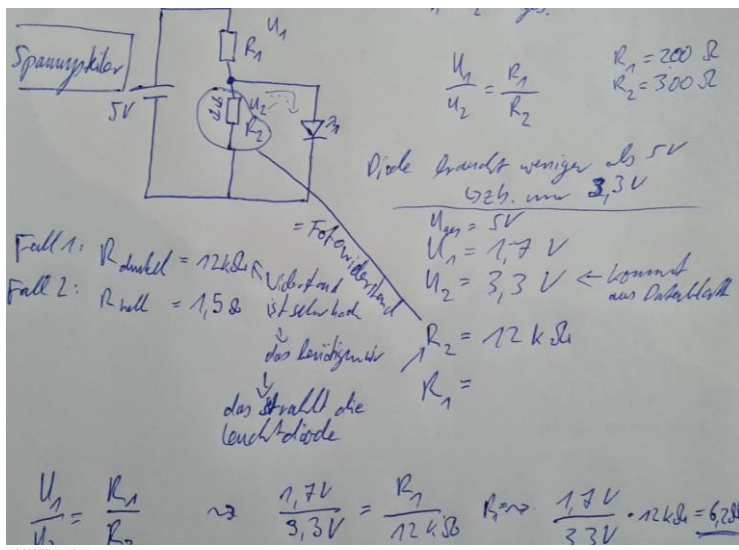 U1
R1
Spannungsteiler
5V
U2
R2
U1/U2 = R1/R2
R1 = 200 Ω
R2 = 300 Ω
Diode braucht weniger als 5V
bzb. nur 3,3V
Uges = 5V
U1 = 1,7 V
U2 = 3,3 V ← kommt aus Datenblatt
= Fotowiderstand
Fall 1: R dunkel = 12kΩ ← Widerstand
ist sehr hoch
Fall 2: R hell = 1,5Ω
das benötigen wir
das strahlt die
Leuchtdiode
R2 = 12 kΩ
R1 =
U1/U2 = R1/R2 ~> 1,7V/3,3V = R1/12kΩ R1 ~> 1,7V/3,3V · 12kΩ = 6,2